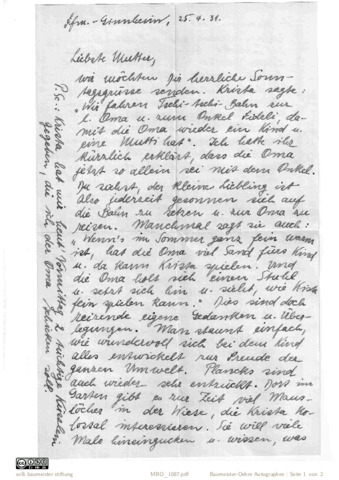 Ffm.-Ginnheim, 25.4.31.
Liebste Mutter,
wir möchten Dir herrliche Sonn-
tagsgrüsse senden. Krista sagte:
"Wir fahren Tschi-tschi-Bahn zur
l. Oma u. zum Onkel Fideli, da-
mit die Oma wieder ein Kind u.
eine Mutti hat". Ich hatte ihr
kürzlich erklärt, dass die Oma
jetzt so allein sei mit dem Onkel.
Du siehst, der kleine Liebling ist
also jederzeit gesonnen sich auf
die Bahn zu setzen u. zur Oma zu
reisen. Manchmal sagt sie auch:
"Wenn's im Sommer ganz fein warm
ist, hat die Oma viel Sand fürs Kind
u. da kann Krista spielen. Und
die Oma holt sich einen Stuhl
u. setzt sich hin u. sieht, wie Krista
fein spielen kann." Dies sind doch
reizende eigene Gedanken u. Über-
legungen. Man staunt einfach,
wie wundervoll sich bei dem Kind
alles entwickelt zur Freude der
ganzen Umwelt. Plancks sind
auch wieder sehr entzückt. Dort im
Garten gibt es zur Zeit viel Maus-
löcher in der Wiese, die Krista ko-
lossal interessieren. Sie will viele
Male hineingucken u. wissen, was
P.S.: Krista hat mir heut Vormittag 2 tüchtige Küsslein
gegeben, die ich der Oma schicken soll.
willi baumeister stiftung
MBO_1087.pdf
Baumeister-Oehm Autographen : Seite 1 von 2